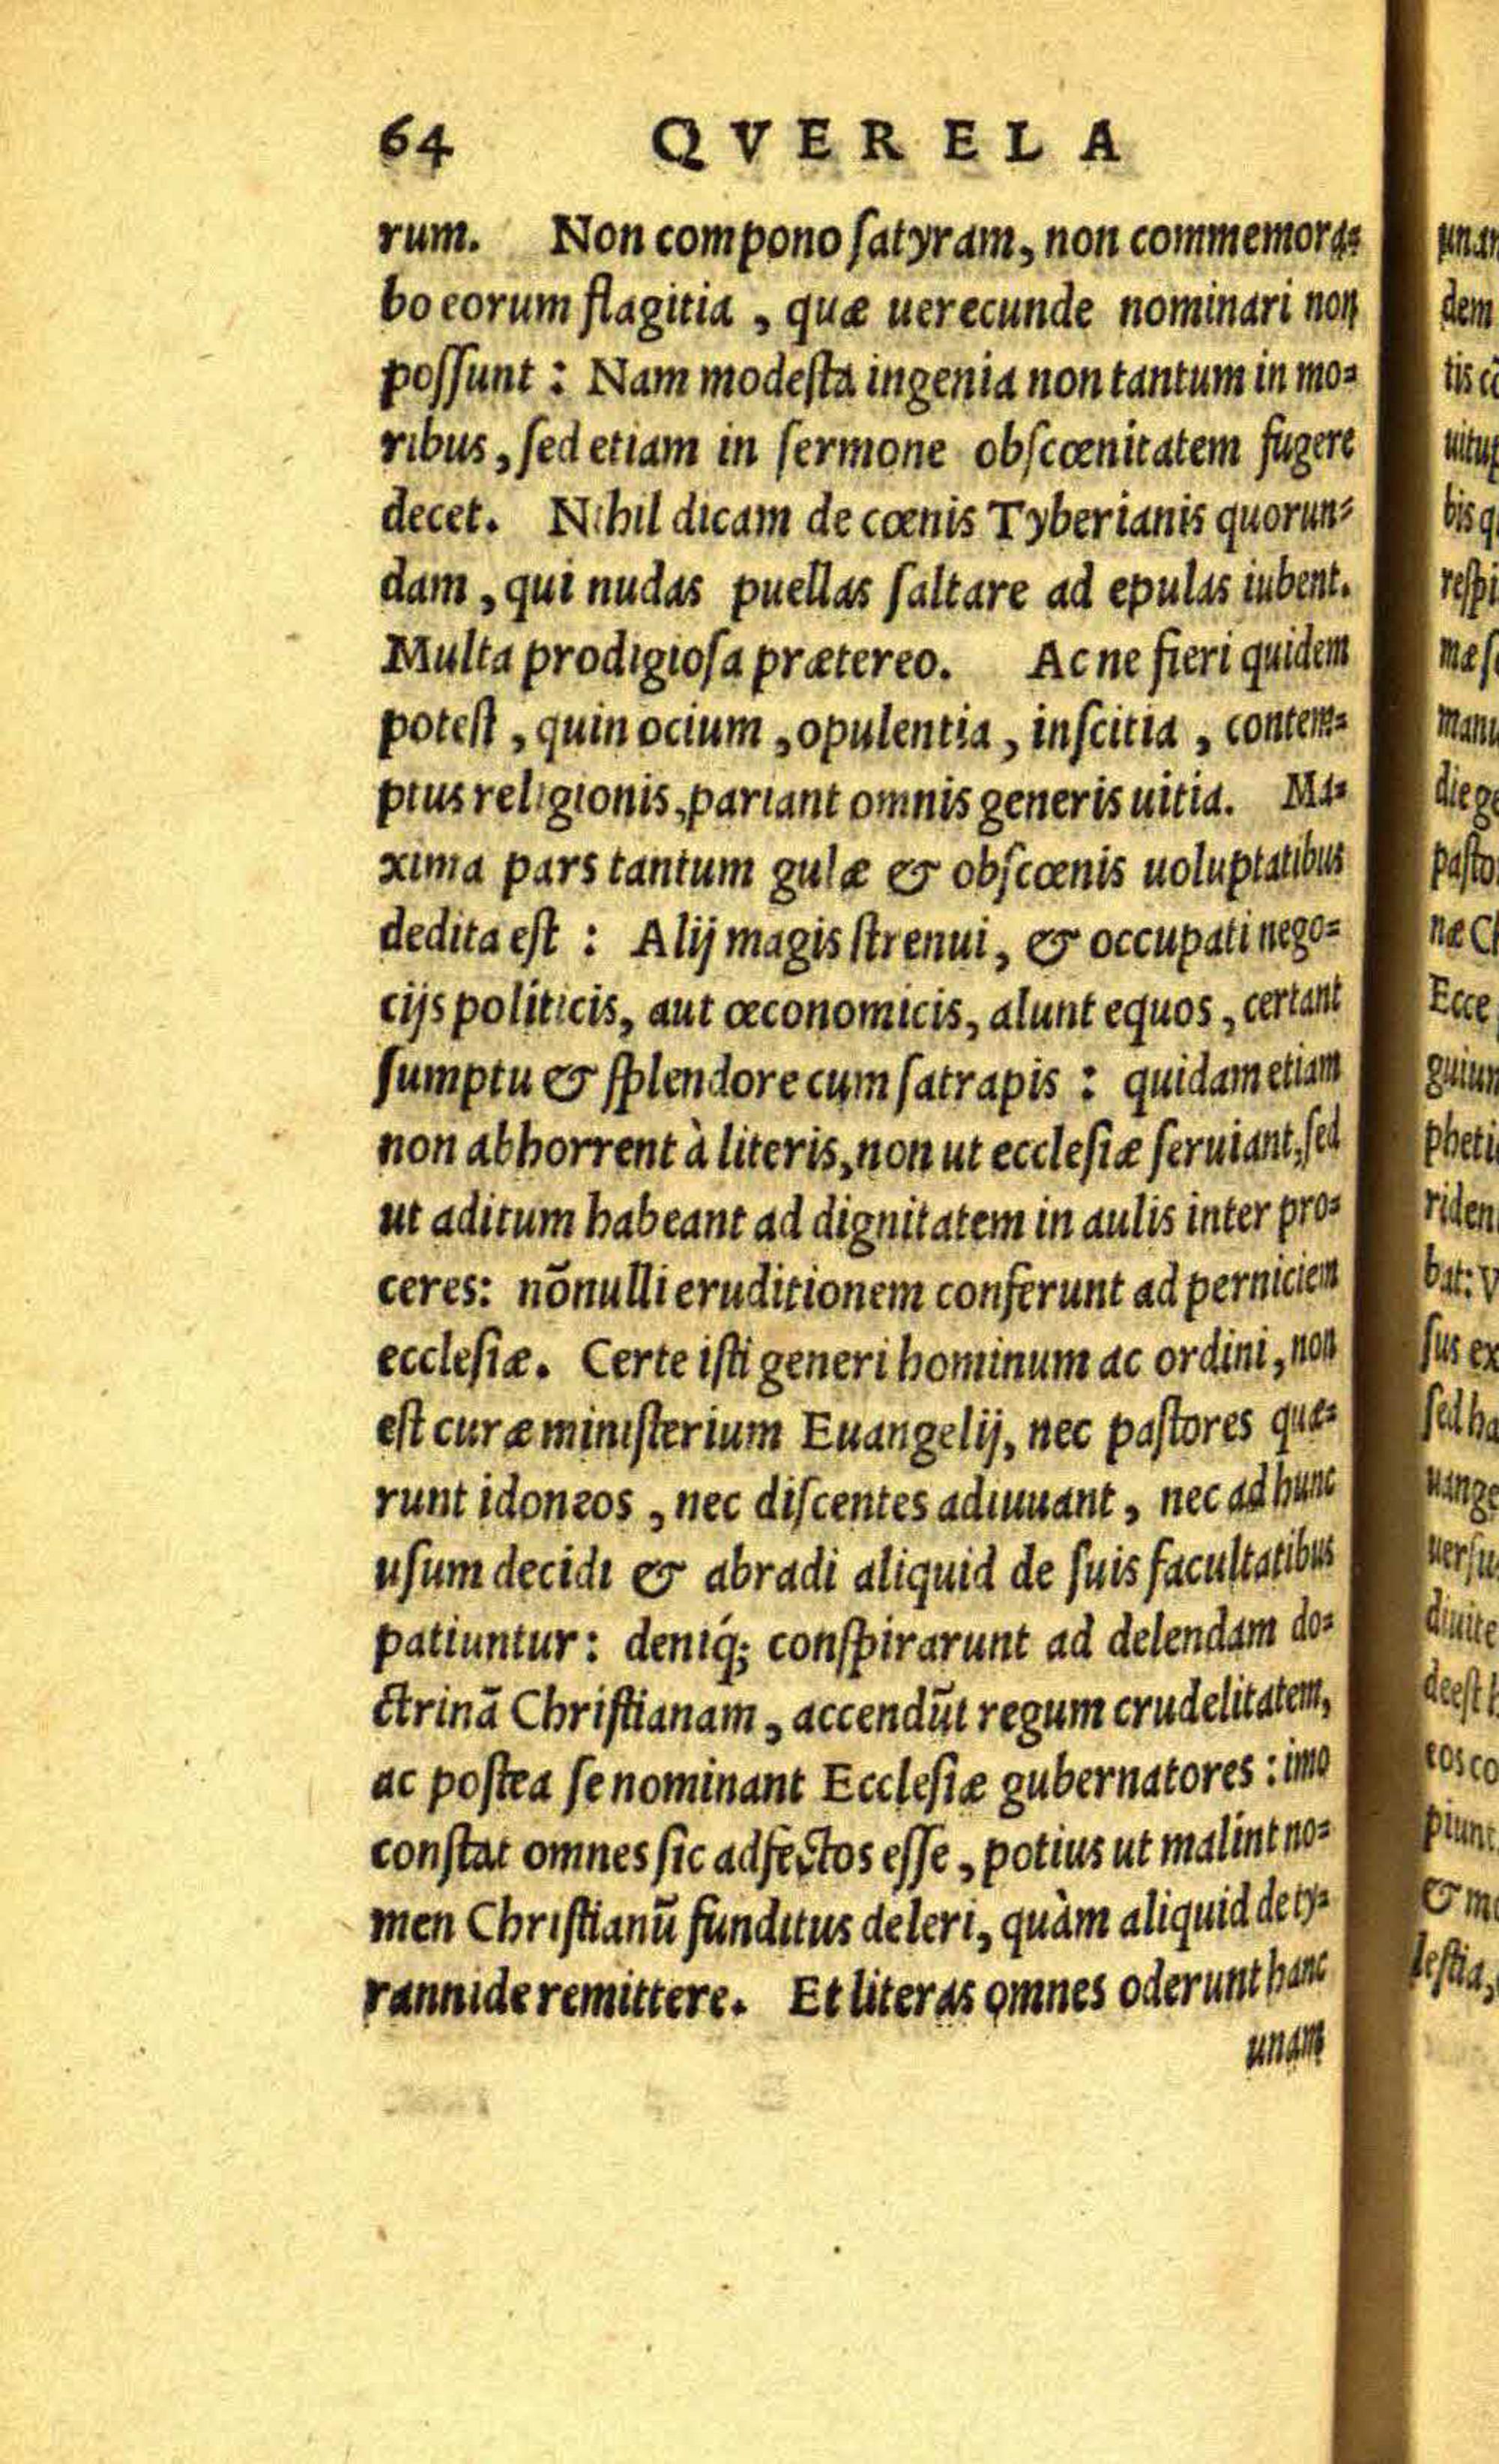 64 QVERELA
rum. Non compono ſatyram, non commemora⸗
bo eorum flagitia, quæ uerecunde nominari non
poſſunt: Nam modeſta ingenia non tantum in mo⸗
ribus, ſed etiam in ſermone obſcœnitatem fugere
decet. Nihil dicam de cœnis Tyberianis quorun⸗
dam, qui nudas puellas ſaltare ad epulas iubent.
Multa prodigioſa prætereo. Ac ne fieri quidem
poteſt, quin ocium, opulentia, inſcitia, contem⸗
ptus religionis, pariant omnis generis uitia. Ma⸗
xima pars tantum gulæ & obſcœnis uoluptatibus
dedita eſt: Alij magis ſtrenui, & occupati nego⸗
cijs politicis, aut œconomicis, alunt equos, certant
ſumptu & ſplendore cum ſatrapis: quidam etiam
non abhorrent à literis, non ut eccleſiæ ſeruiant, ſed
ut aditum habeant ad dignitatem in aulis inter pro⸗
ceres: nōnulli eruditionem conferunt ad perniciem
eccleſiæ. Certe iſti generi hominum ac ordini, non
eſt curæ miniſterium Euangelij, nec paſtores quæ⸗
runt idoneos, nec diſcentes adiuuant, nec ad hunc
uſum decidi & abradi aliquid de ſuis facultatibus
patiuntur: deniq́; conſpirarunt ad delendam do⸗
ctrinā Chriſtianam, accendūt regum crudelitatem,
ac poſtea ſe nominant Eccleſiæ gubernatores: imo
conſtat omnes ſic adfectos eſſe, potius ut malint no⸗
men Chriſtianū funditus deleri, quàm aliquid de ty⸗
rannide remittere. Et literas omnes oderunt hanc
unam
dem
paſto
Ecce